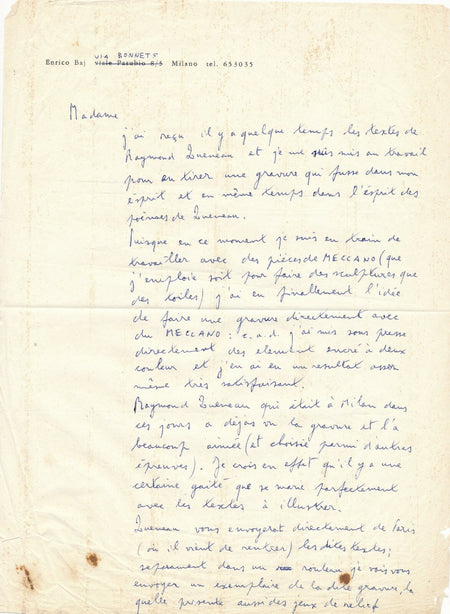 VIA BONNET 5
Enrico Baj viale Pasubio 8/5 Milano tel. 653035
Madame
j'ai reçu il y a quelque temps les textes de
Raymond Queneau et je me suis mis au travail
pour en tirer une gravure qui fusse dans mon
ésprit et en même temps dans l'ésprit des
poèmes de Queneau.
Puisque en ce moment je suis en train de
travailler avec des pièces de MECCANO (que
j'emploie soit pour faire des sculptures que
des toiles) j'ai eu finallement l'idée
de faire une gravure directement avec
du MECCANO : c.a.d. j'ai mis sous presse
directement des element encré a deux
couleur et j'en ai eu un resultat assez
même très satisfaisant.
Raymond Queneau qui était à Milan dans
ces jours a dejàs vu la gravure et l'a
beaucoup aimée (et choisie parmi d'autres
épreuves). Je crois en effet qu'il y a une
certaine gaité que se marie parfectement
avec les textes à illustrer.
Queneau vous envoyerat directement de Paris
(où il vient de rentrer) les dites textes;
separament dans un rouleau je vais vous
envoyer un exemplaire de la dite gravure, la
quelle présente aussi des jeux de relief